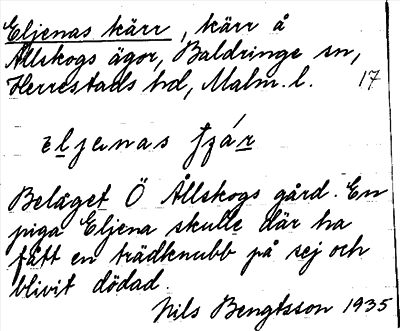 Eljenas kärr, kärr å
Ållskogs ägor, Baldringe sn,
Herrestads hd, Malm. l. 17
eljenas ʃjár
Beläget Ö Ållskogs gård. En
piga Eljena skulle där ha
fått en trädknubb på sej och
blivit dödad.
Nils Bengtsson 1935